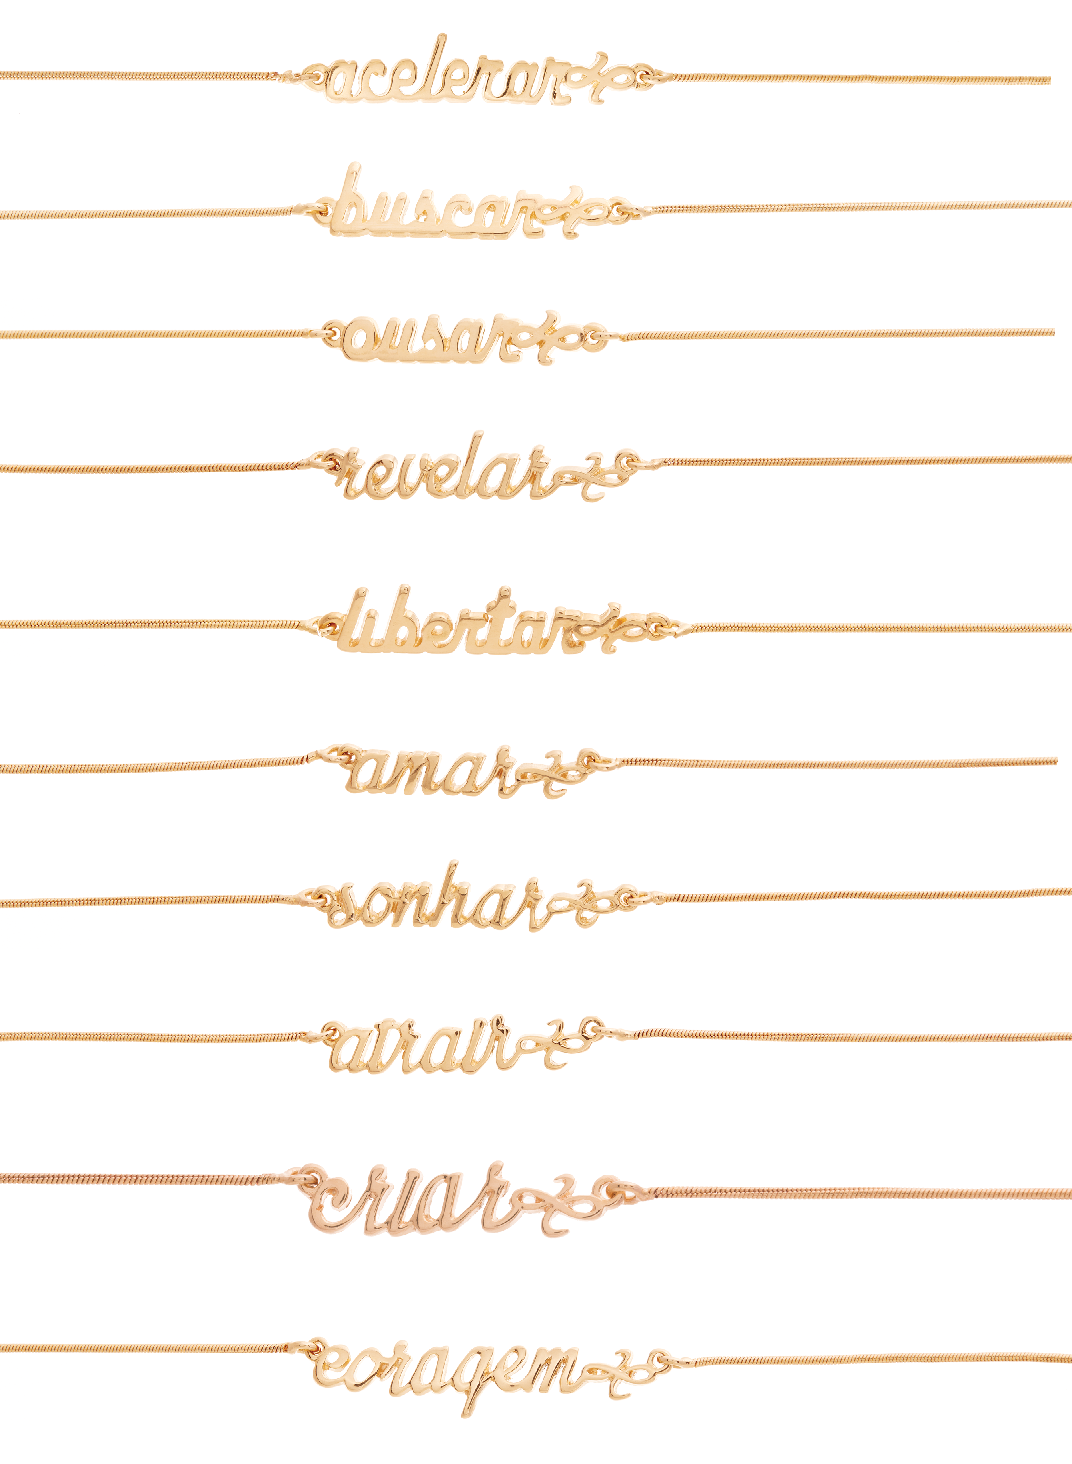 acelerar
buscar
ousar
revelar
libertar
amar
sonhar
atrair
criar
coragem